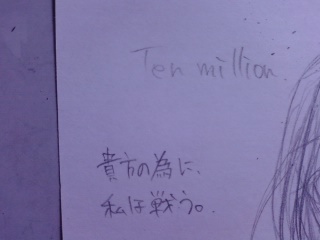 Ten million
貴方の為に、
私は戦う。